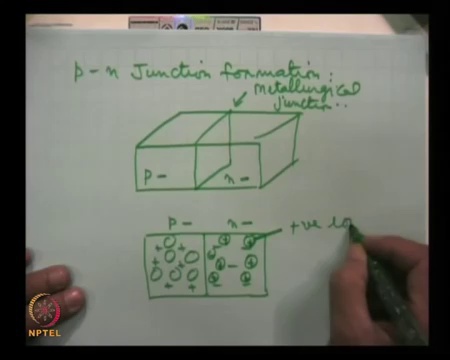 p-n Junction formation:
metallurgical
junction..
p- n-
p- n-
+ve io
NPTEL